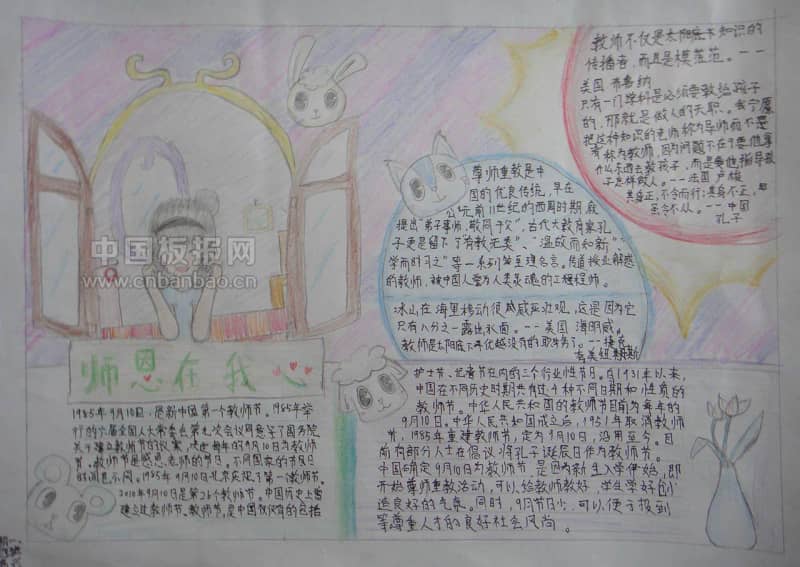 中国板报网
www.cnbanbao.cn
师恩在我心
1985年9月10日，是新中国第一个教师节。1985年举
行的六届全国人大常委会第九次会议同意了国务院
关于建立教师节的议案，决定每年的9月10日为教师
节。教师节是感恩老师的节日。不同国家的节日日
时间也不同。1985年9月10日，
2010年9月10日是第26个教师节。中国历史上曾
建立过教师节。教师节，是中国仅仅有的包括
尊师重教是中
国的优良传统，早在
公元前11世纪的西周时期，就
提出"弟子事师，敬同于父"。古代大教育家孔
子更是留下了"有教无类"、"温故而知新"、
"学而时习之"等一系列至理名言。传道授业解惑
的教师，被中国人誉为人类灵魂的工程师。
冰山在海里移动很威严壮观，这是因为它
只有八分之一露出水面。--美国 海明威
教师是太阳底下再优越没有的职务了。--捷克
夸美纽斯
教师不仅是太阳底下知识的
传播者，而且是模范。--
美国 布鲁纳
只有一门学科是必须要教给孩子
的，那就是做人的天职。我宁愿
把这种知识的老师称为导师而不是
称为教师，因为问题不在于要他拿
什么东西去教孩子，而是要他指导孩
子怎样做人。--法国 卢梭
其身正，不令而行；其身不正，虽
令不从。--中国
孔子
护士节、记者节在内的三个行业性节日。自1931年以来，
中国在不同历史时期共有过4种不同日期和性质的
教师节。中华人民共和国的教师节目前为每年的
9月10日。中华人民共和国成立之后，1951年取消教师
节，1985年重建教师节，定为9月10日，沿用至今。目
前有部分人士在倡议将孔子诞辰日作为教师节。
中国确定9月10日为教师节，是因为新生入学伊始，即
开始尊师重教活动，可以给教师教好、学生学好创
造良好的气氛。同时，9月节日少，可以便于报到
等尊重人才的良好社会风尚。